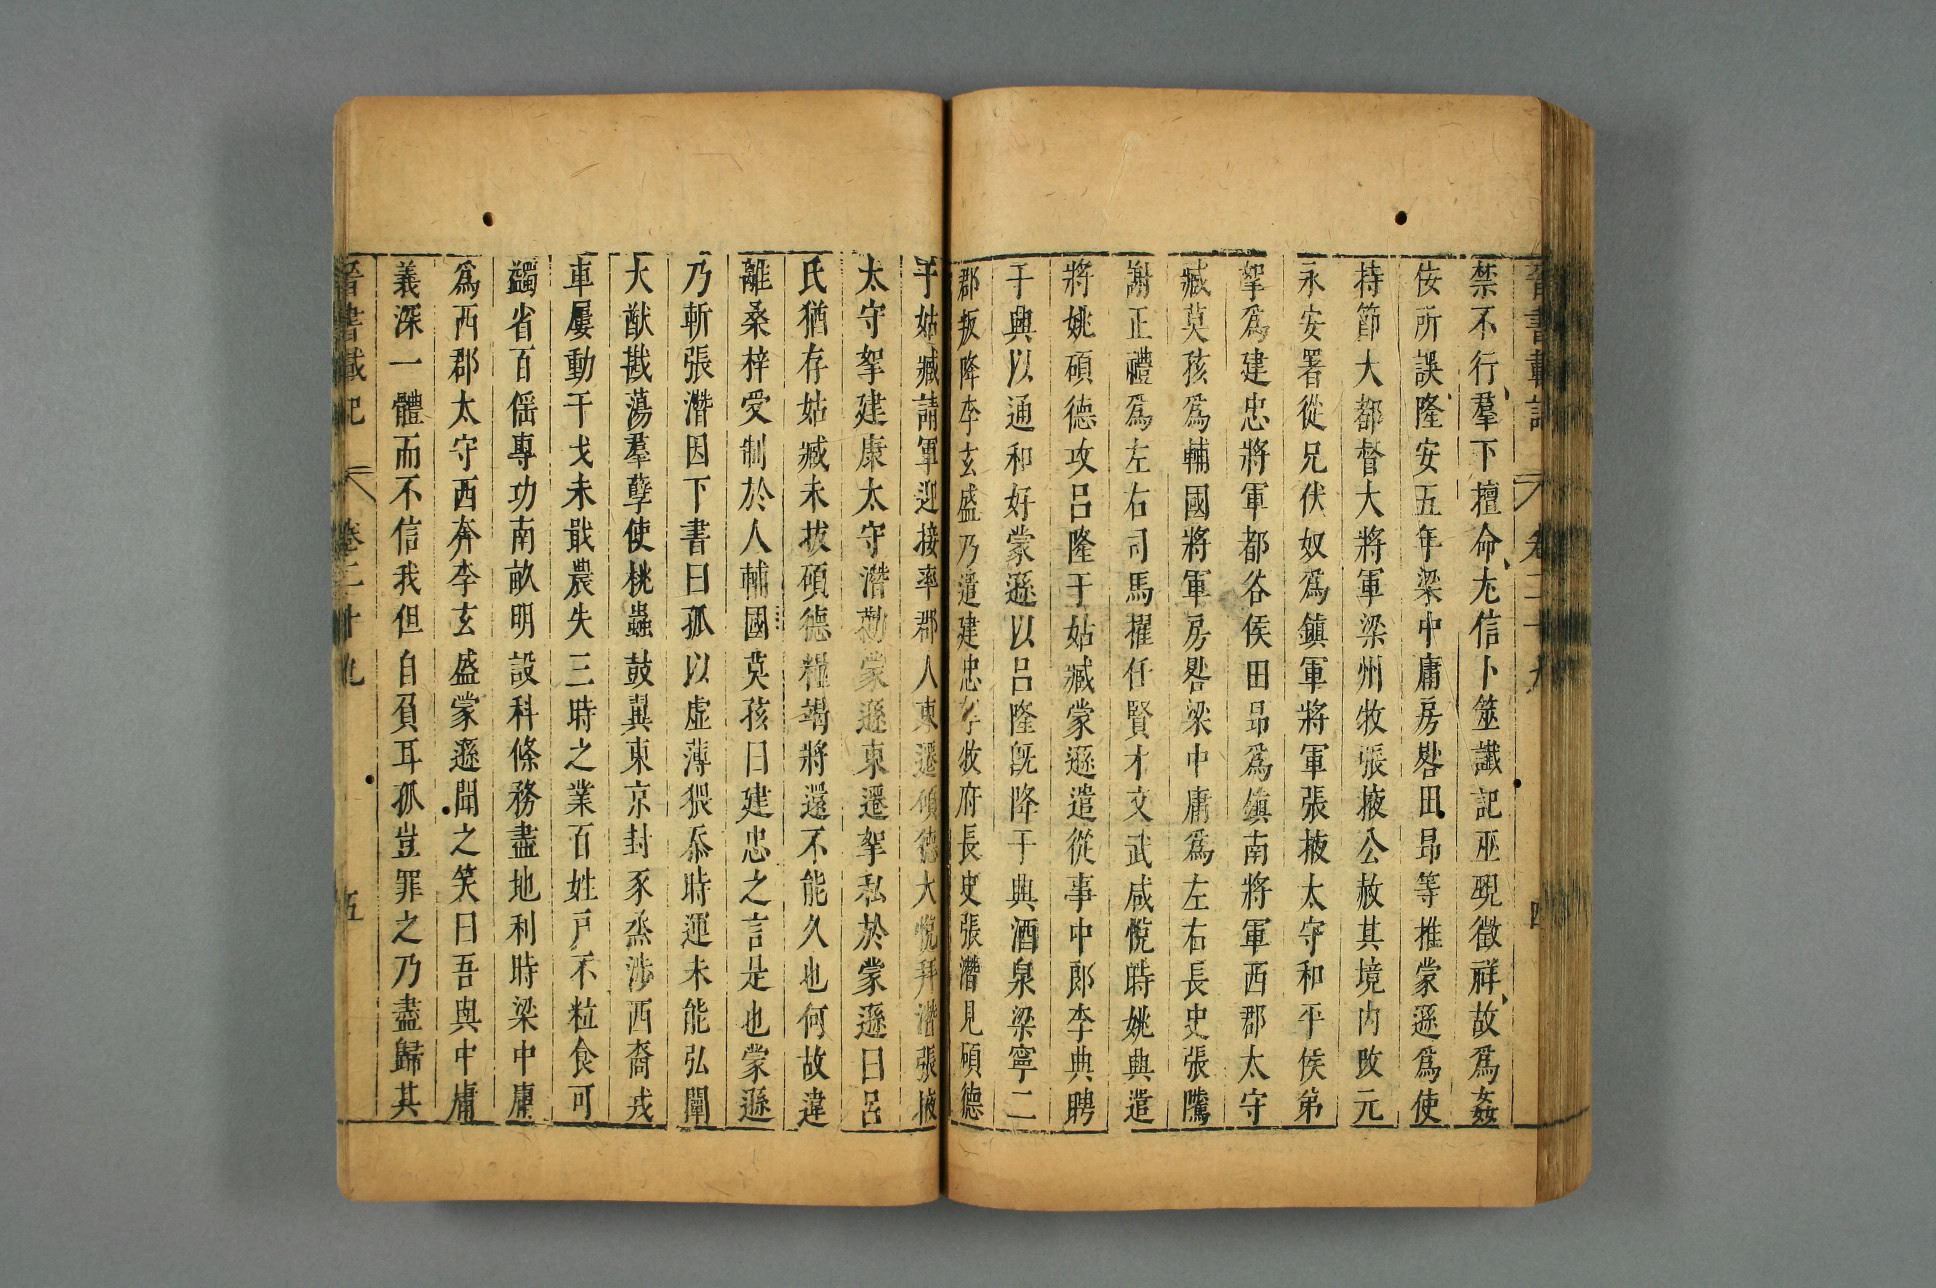 晉書載記 卷二十九 四
禁不行羣下擅命尤信卜筮讖記巫覡徵祥故爲姦
佞所誤隆安五年梁中庸房晷田昂等推蒙遜爲使
持節大都督大將軍梁州牧張掖公赦其境内改元
永安署從兄伏奴爲鎮軍將軍張掖太守和平侯弟
挐爲建忠將軍都谷侯田昂爲鎮南將軍西郡太守
臧莫孩爲輔國將軍房晷梁中庸爲左右長史張騭
謝正禮爲左右司馬擢任賢才文武咸悅時姚興遣
將姚碩德攻呂隆于姑臧蒙遜遣從事中郎李典聘
于興以通和好蒙遜以呂隆旣降于興酒泉梁寧二
郡叛降李玄盛乃遣建忠挐牧府長史張潛見碩德
于姑臧請軍迎接率郡人東遷碩德大悅拜潛張掖
太守挐建康太守潛勸蒙遜東遷挐私於蒙遜曰呂
氏猶存姑臧未拔碩德糧竭將還不能久也何故違
離桑梓受制於人輔國莫孩曰建忠之言是也蒙遜
乃斬張潛因下書曰孤以虛薄猥忝時運未能弘闡
大猷戡蕩羣孽使桃蟲鼓翼東京封豕烝涉西裔戎
車屢動干戈未戢農失三時之業百姓戸不粒食可
蠲省百傜專功南畝明設科條務盡地利時梁中庸
爲西郡太守西奔李玄盛蒙遜聞之笑曰吾與中庸
義深一體而不信我但自負耳孤豈罪之乃盡歸其
晉書載記 卷二十九 五